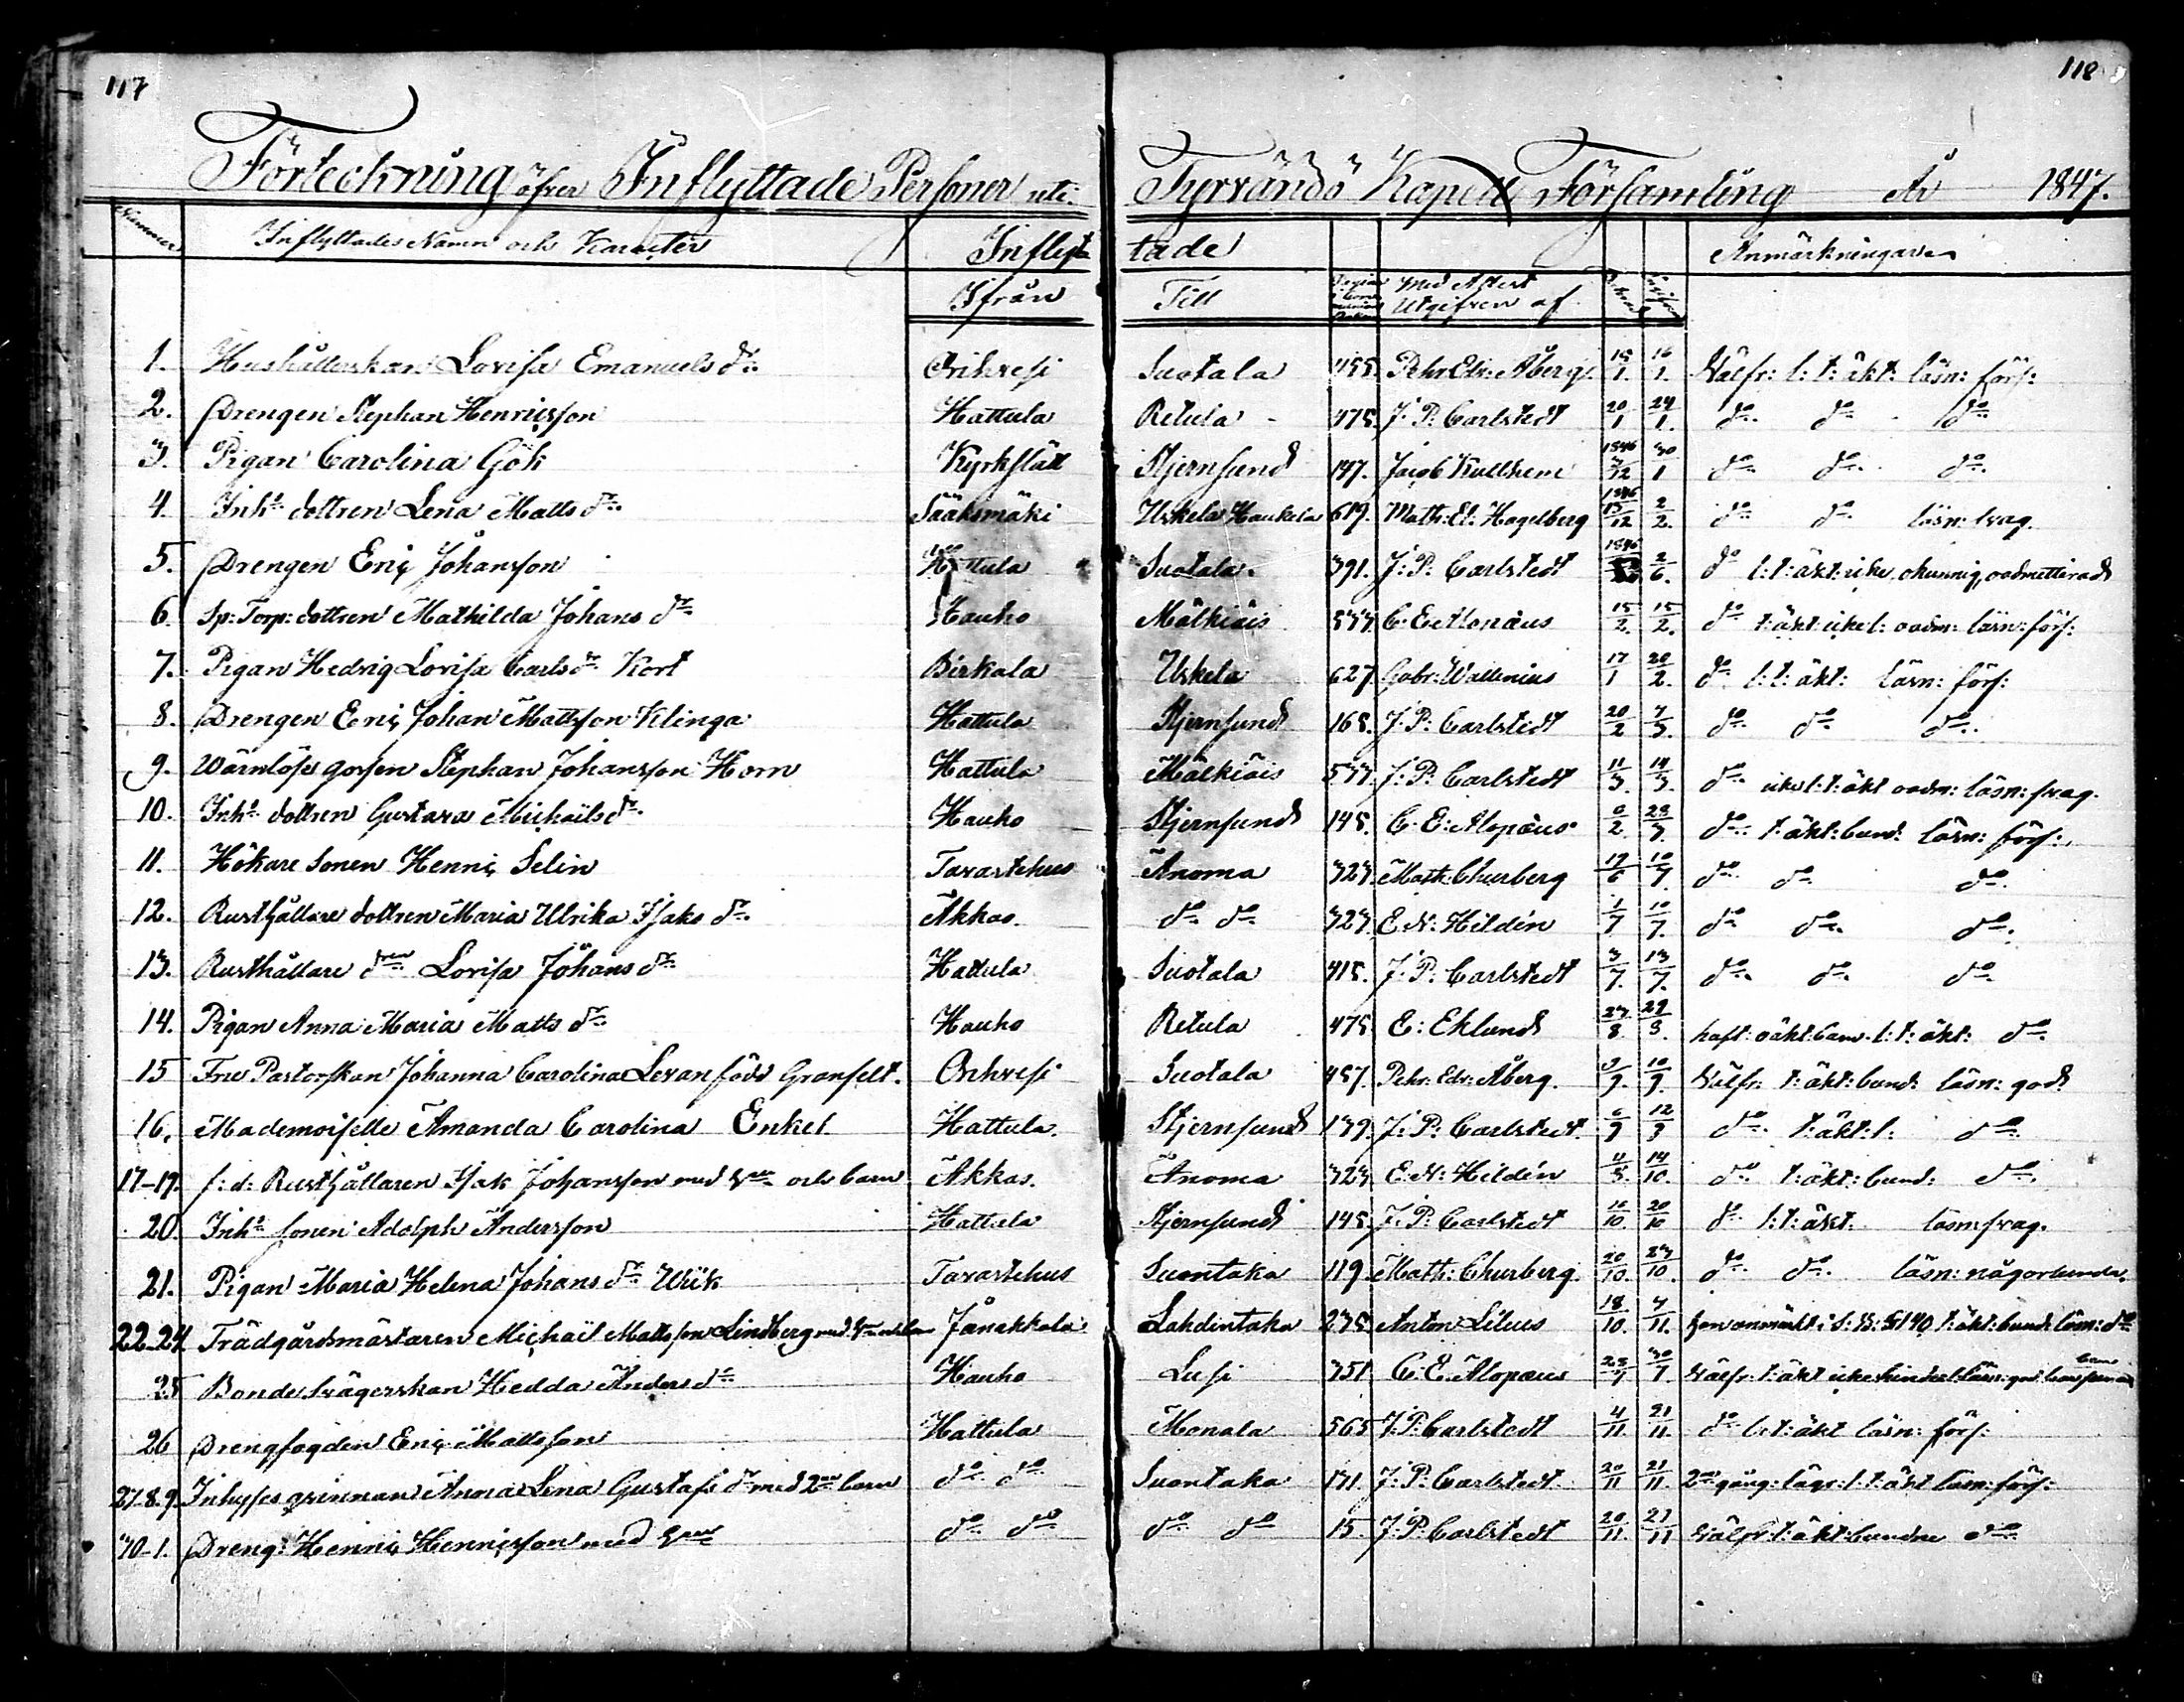 117
118
Förteckning öfver Inflyttade Personer uti Tyrvändö Kapell Församling År 1847.
Nummer Inflyttades Namn och Karacter Inflyttade Anmärkningar
Ifrån Till Med Attest Utgifven af
1. Hushållerskan Lovisa Emanuels dr. Orihvesi Suotala 455. Pehr Edv: Åberg 15/1. 16/1. Välfr: l: t: äkt: läsn: förs:
2. Drengen Stephan Henricsson Hattula Retula 475. J: P: Carlstedt 20/1 24/1. do do do
3. Pigan Carolina Gök Kyrkslätt Stjernsund 147. Jacob Kullhem 1846 /12 30/1 do do do
4. Inhs dottren Lena Matts dr. Sääksmäki Uskela Haukela 619. Math: El: Hagelberg 1846 15/12 2/2. do do läsn: svag.
5. Drengen Eric Johansson Hattula Suotala. 391. J: P: Carlstedt 1846 2/6. do l: t: äkt: icke okunnig, oadmitterad
6. Sp: Torp: dottren Mathilda Johans dr. Hauho Mälkiäis 577. C: E: Alopæus 15/2. 15/2. do t: äkt: icke l: oadm: läsn: förs:
7. Pigan Hedvig Lovisa Carls dr. Kort Birkala Uskela 627. Gabr: Wallenius 17/1 20/2. do l: t: äkt: läsn: förs:
8. Drengen Eric Johan Mattsson Klinga Hattula Stjernsund 165. J: P: Carlstedt 20/2 7/3. do do do
9. Wärnlöse gossen Stephan Johansson Horn Hattula Mälkiäis 577. J: P: Carlstedt 11/3. 14/3. do icke l: t: äkt oadm: läsn: svag.
10. Inhs dottren Gustava Michaels dr. Hauho Stjernsund 145. C: E: Alopæus 6/2. 28/3. do t: äkt: bund: läsn: förs:
11. Hökare Sonen Henric Selin Tavastehus Anoma 323. Math: Churberg 19/6 10/7. do do do
12. Rusthållare dottren Maria Ulrika Isaks dr. Akkas. do do 323. E: N: Hildén 1/7 10/7. do do do
13. Rusthållare dren Lovisa Johans dr. Hattula Suotala 415. J: P: Carlstedt 3/7. 13/7. do do do
14. Pigan Anna Maria Matts dr. Hauho Retula 475 E: Eklund 27/8. 29/8. haft: oäkt: barn. l: t: äkt: do
15 Fru Pastorskan Johanna Carolina Levan född Granfelt. Orihvesi Suotala 457. Pehr Edv: Åberg. 3/9. 10/9. Välfr: t: äkt: bund: läsn: god
16. Mademoiselle Amanda Carolina Enkel Hattula. Stjernsund 139. J: P: Carlstedt. 6/9 12/9 do t: äkt: l: do
17-19. f: d: Rusthållaren Isak Johansson med hu och barn Akkas. Anoma 323 E: N: Hildén 11/8. 14/10. do t: äkt: bund: do
20. Inhs sonen Adolph Andersson Hattula Stjernsund 145. J: P: Carlstedt 10/10. 20/10 do l: t: äkt: läsn: svag.
21. Pigan Maria Helena Johans dr. Wiik Tavastehus Suontaka 119. Math: Churberg. 20/10. 23/10. do do läsn: någorlunda.
22-24 Trädgårdsmästaren Michaël Mattsson Lindberg med Janakkala Lahdintaka 275. Anton Lilius 18/10. 7/11. t: äkt: bund: läsn: do
25 Bonde Svägerskan Hedda Anders dr. Hauho Lusi 351 C: E: Alopæus 30/7. Välfr: t: äkt
26 Drengfogden Eric Mattsson Hattula Monala 565 J: P: Carlstedt 4/11. 21/11. do l: t: äkt läsn: förs:
27.8.9. Inhyses qvinnan Anna Lena Gustafs dr med 2ne barn do do Suontaka 171. J: P: Carlstedt. 20/11 21/11. 2ne gång: lägr: l: t: äkt läsn: förs:
30-1. Dreng: Henric Henricsson med hu do do do do 15. J: P: Carlstedt 20/11. 27/11 Välfr: t: äkt: bundne do